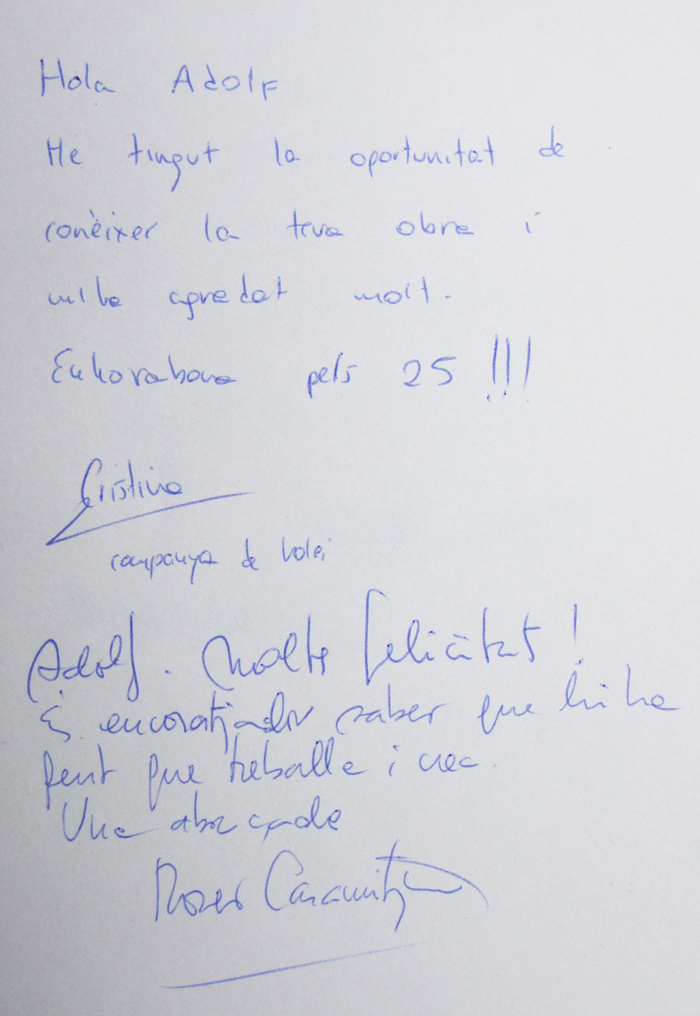 Hola Adolf
He tingut la oportunitat de
conèixer la teva obra i
m'ha agradat molt.
Enhorabona pels 25 !!!
Cristina
companya de volei
Adolf. Molta felicitat!
És encoratjador saber que hi ha
gent que treballa i crea.
Una abraçada
Roser